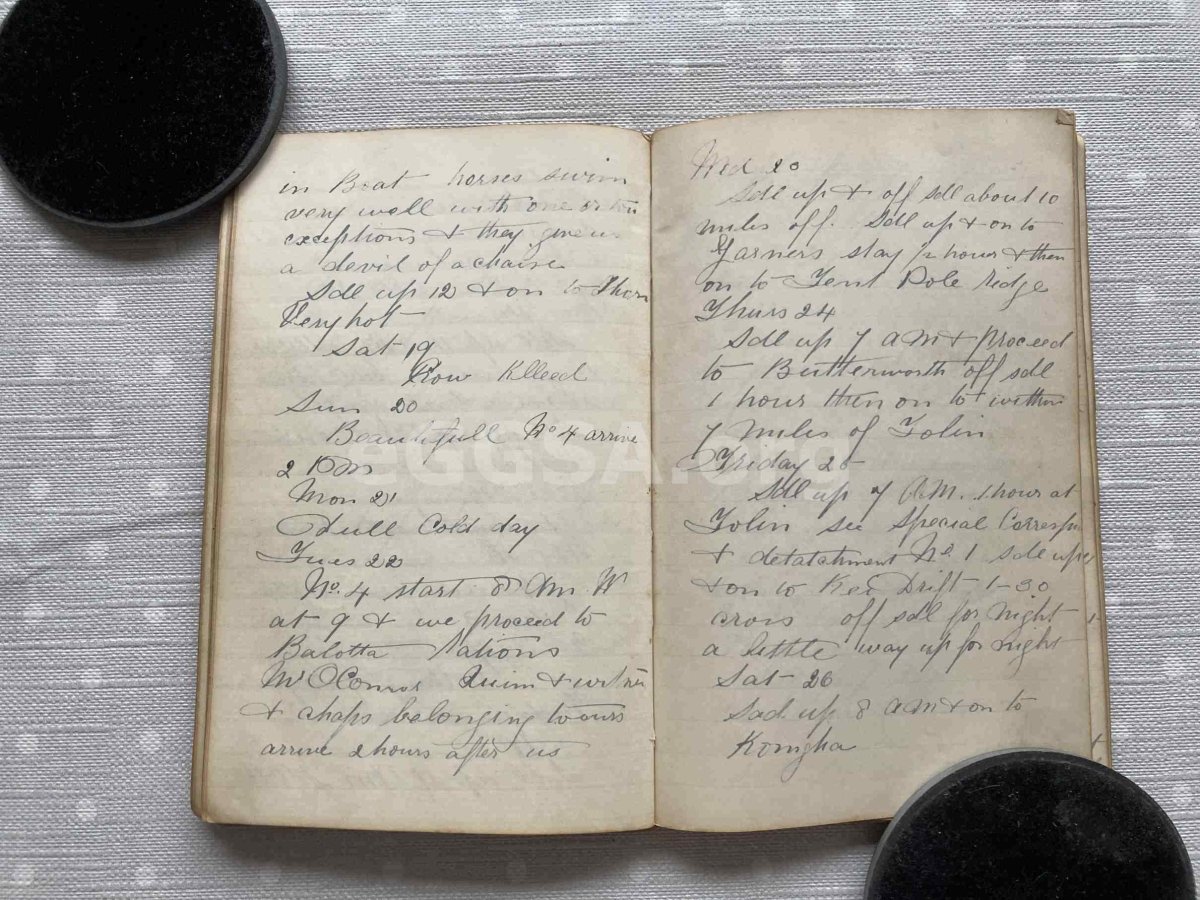 in Boat horses swim
very well with one or two
exceptions & they give us
a devil of a chaise
Sdl up 12 & on to
Very hot
Sat 19
Row Killeed
Sun 20
Beautifull No 4 arrive
2 P.M
Mon 21
Dull Cold day
Tues 22
No. 4 start 8 Am. W
at 9 & we proceed to
Balotta Rations
McOConnor Quinn &
& chaps belonging to ours
arrive 2 hours after us
Wed 20
Sdl up & off sdl about 10
miles off. Sdl up & on to
Garners stay ½ hour & then
on to Tent Pole ridge
Thurs 24
Sdl up 7 a M & Proceed
to Butterworth off sdl
1 hour then on to within
7 miles of Tolin
Friday 25
Sdl up 7 A.M. 1 hour at
Tolin see Special Correspn
& detatchment No 1 sdl up
& on to Kei Drift 1-30
cross off sdl for night
a little way up for night
Sat 26
Sad up 8 a M & on to
Komgha
eGGSA.org